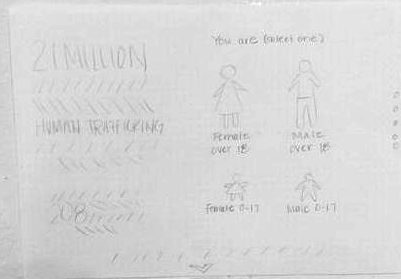 21 MILLION
HUMAN TRAFFICKING
208
You are (select one)
Female
over 18
Male
over 18
Female 0-17
Male 0-17